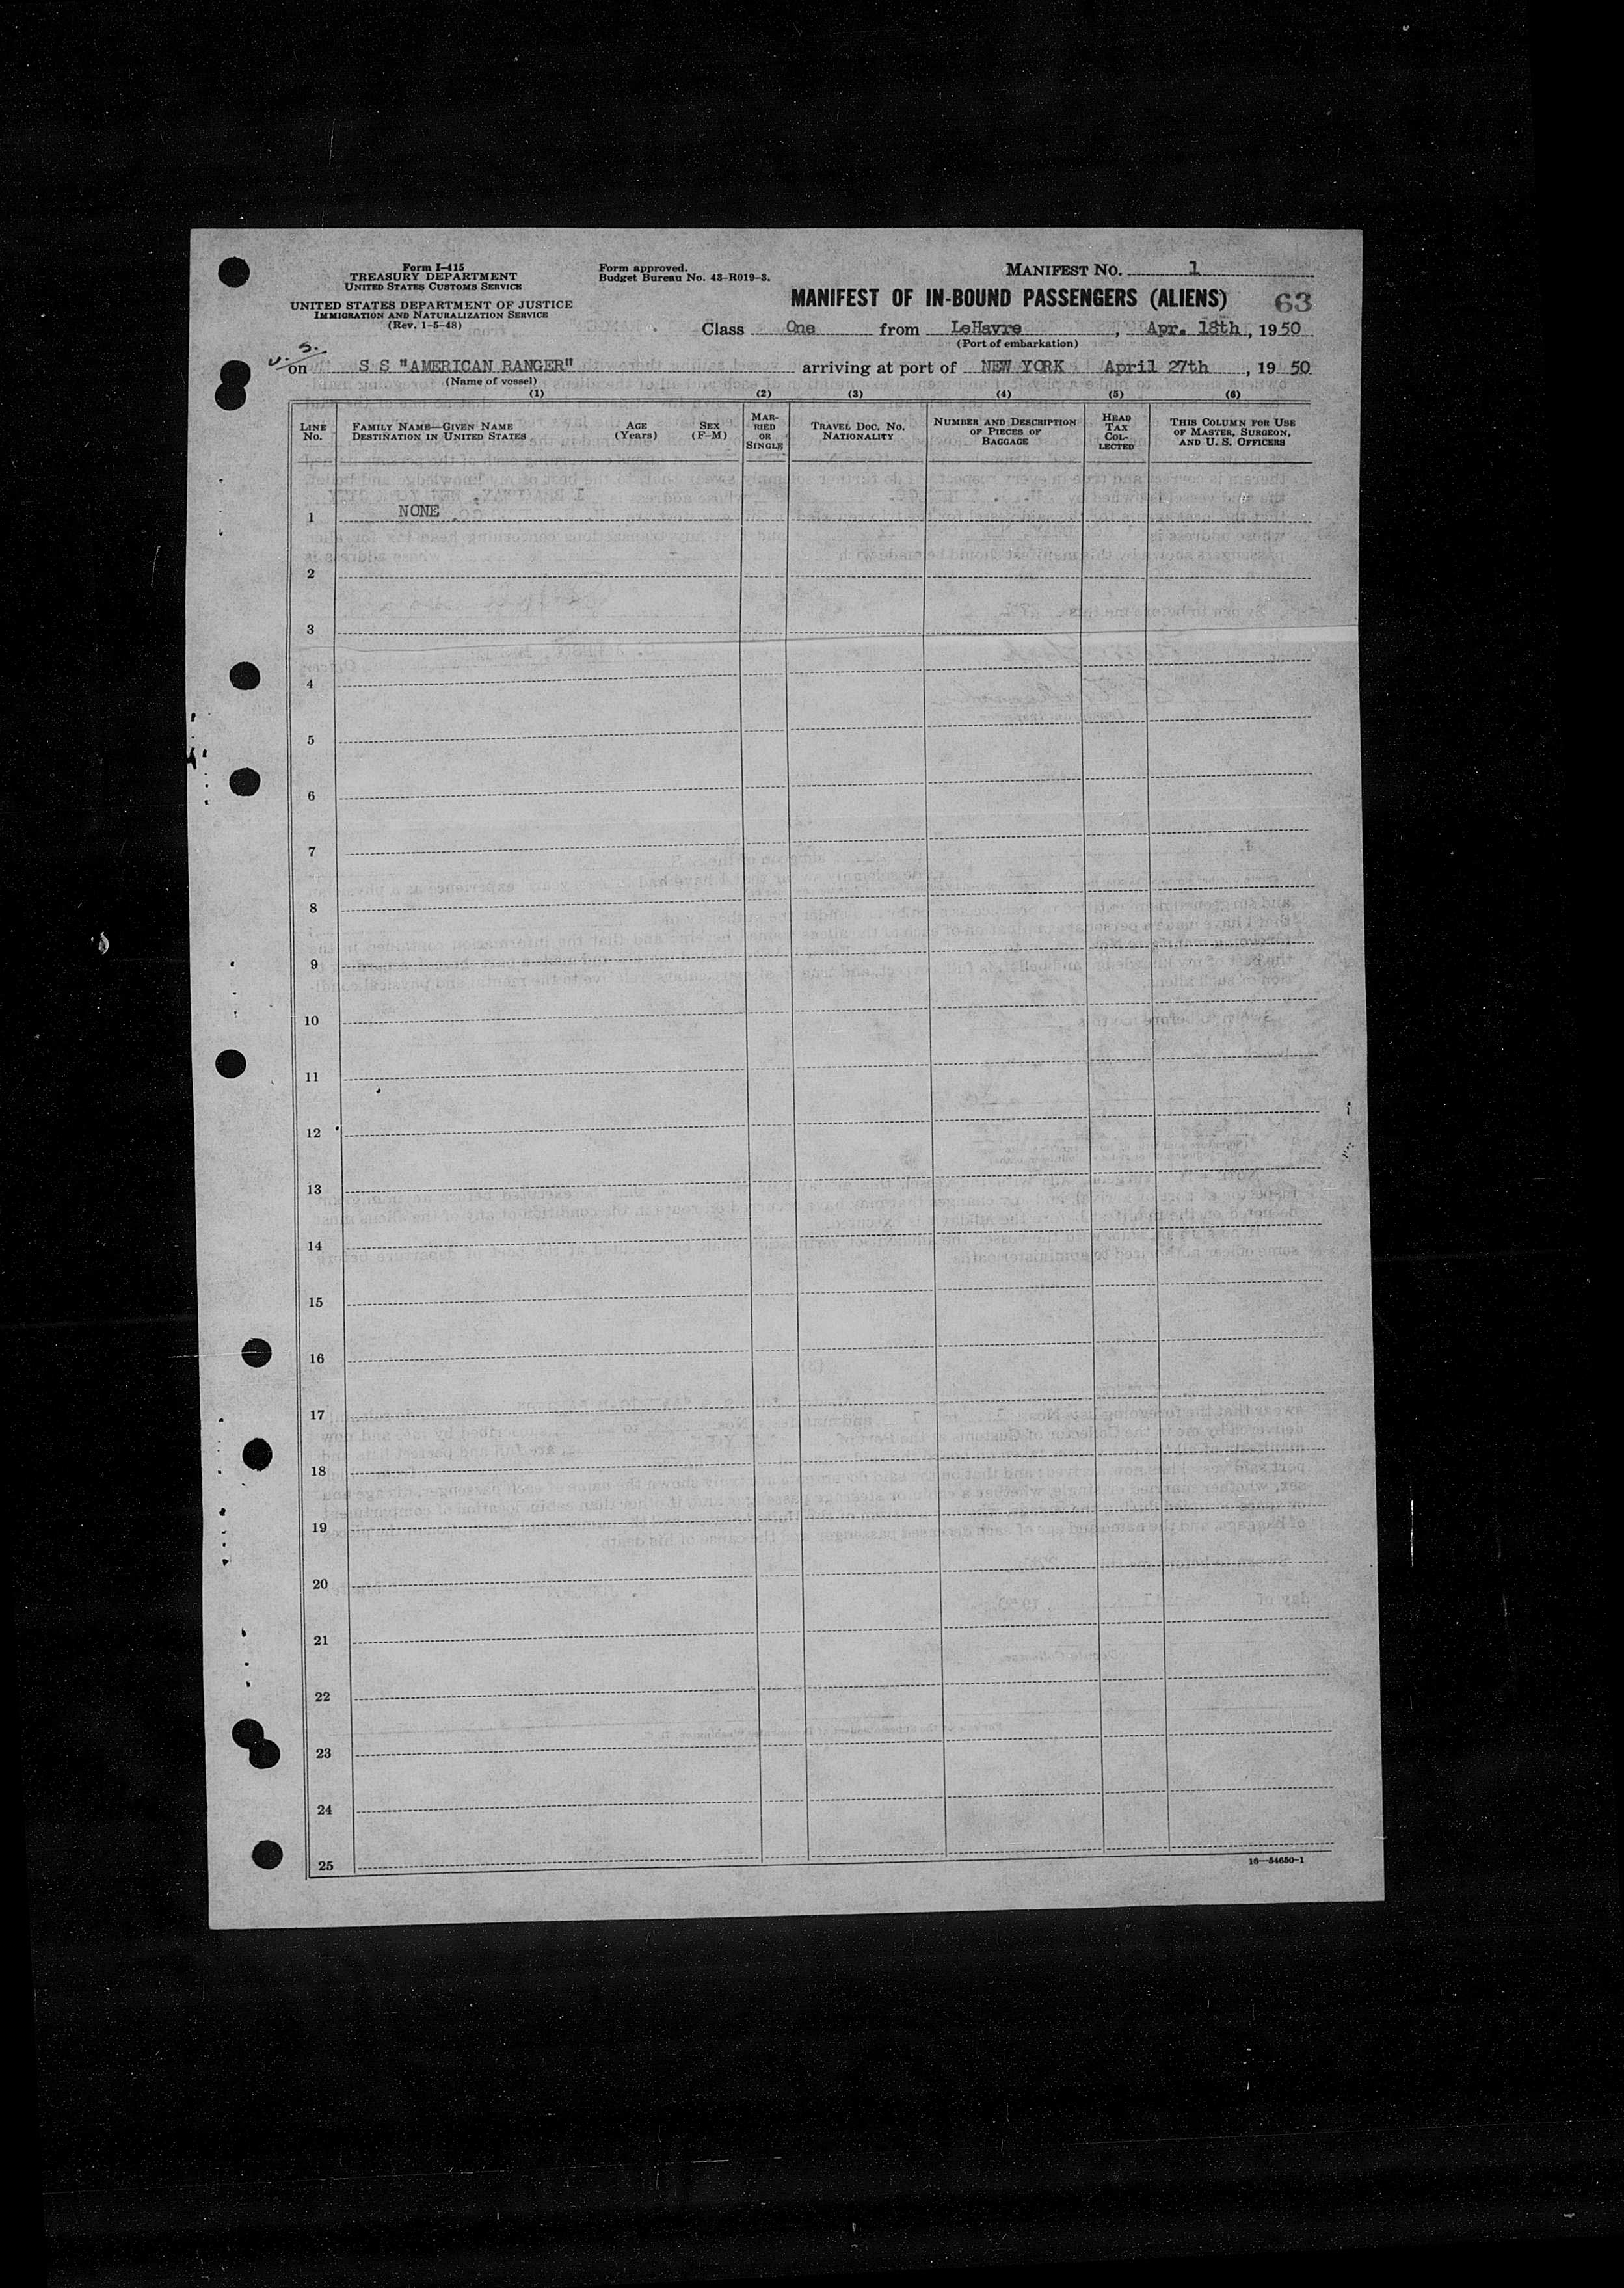 Form I-415
TREASURY DEPARTMENT
UNITED STATES CUSTOMS SERVICE
UNITED STATES DEPARTMENT OF JUSTICE
IMMIGRATION AND NATURALIZATION SERVICE
(Rev. 1-5-48)
Form approved.
Budget Bureau No. 43-R019-3.
MANIFEST NO. 1
MANIFEST OF IN-BOUND PASSENGERS (ALIENS) 63
Class One from LeHavre, Apr. 18th, 1950
(Port of embarkation)
U. S.
on S S "AMERICAN RANGER" arriving at port of NEW YORK April 27th, 19 50
(Name of vessel)
(1) (2) (3) (4) (5) (6)
LINE No. FAMILY NAME—GIVEN NAME DESTINATION IN UNITED STATES AGE (Years) SEX (F-M) MARRIED OR SINGLE TRAVEL DOC. NO. NATIONALITY NUMBER AND DESCRIPTION OF PIECES OF BAGGAGE HEAD TAX COLLECTED THIS COLUMN FOR USE OF MASTER, SURGEON, AND U. S. OFFICERS
1 NONE
2
3
4
5
6
7
8
9
10
11
12
13
14
15
16
17
18
19
20
21
22
23
24
25
16-54650-1